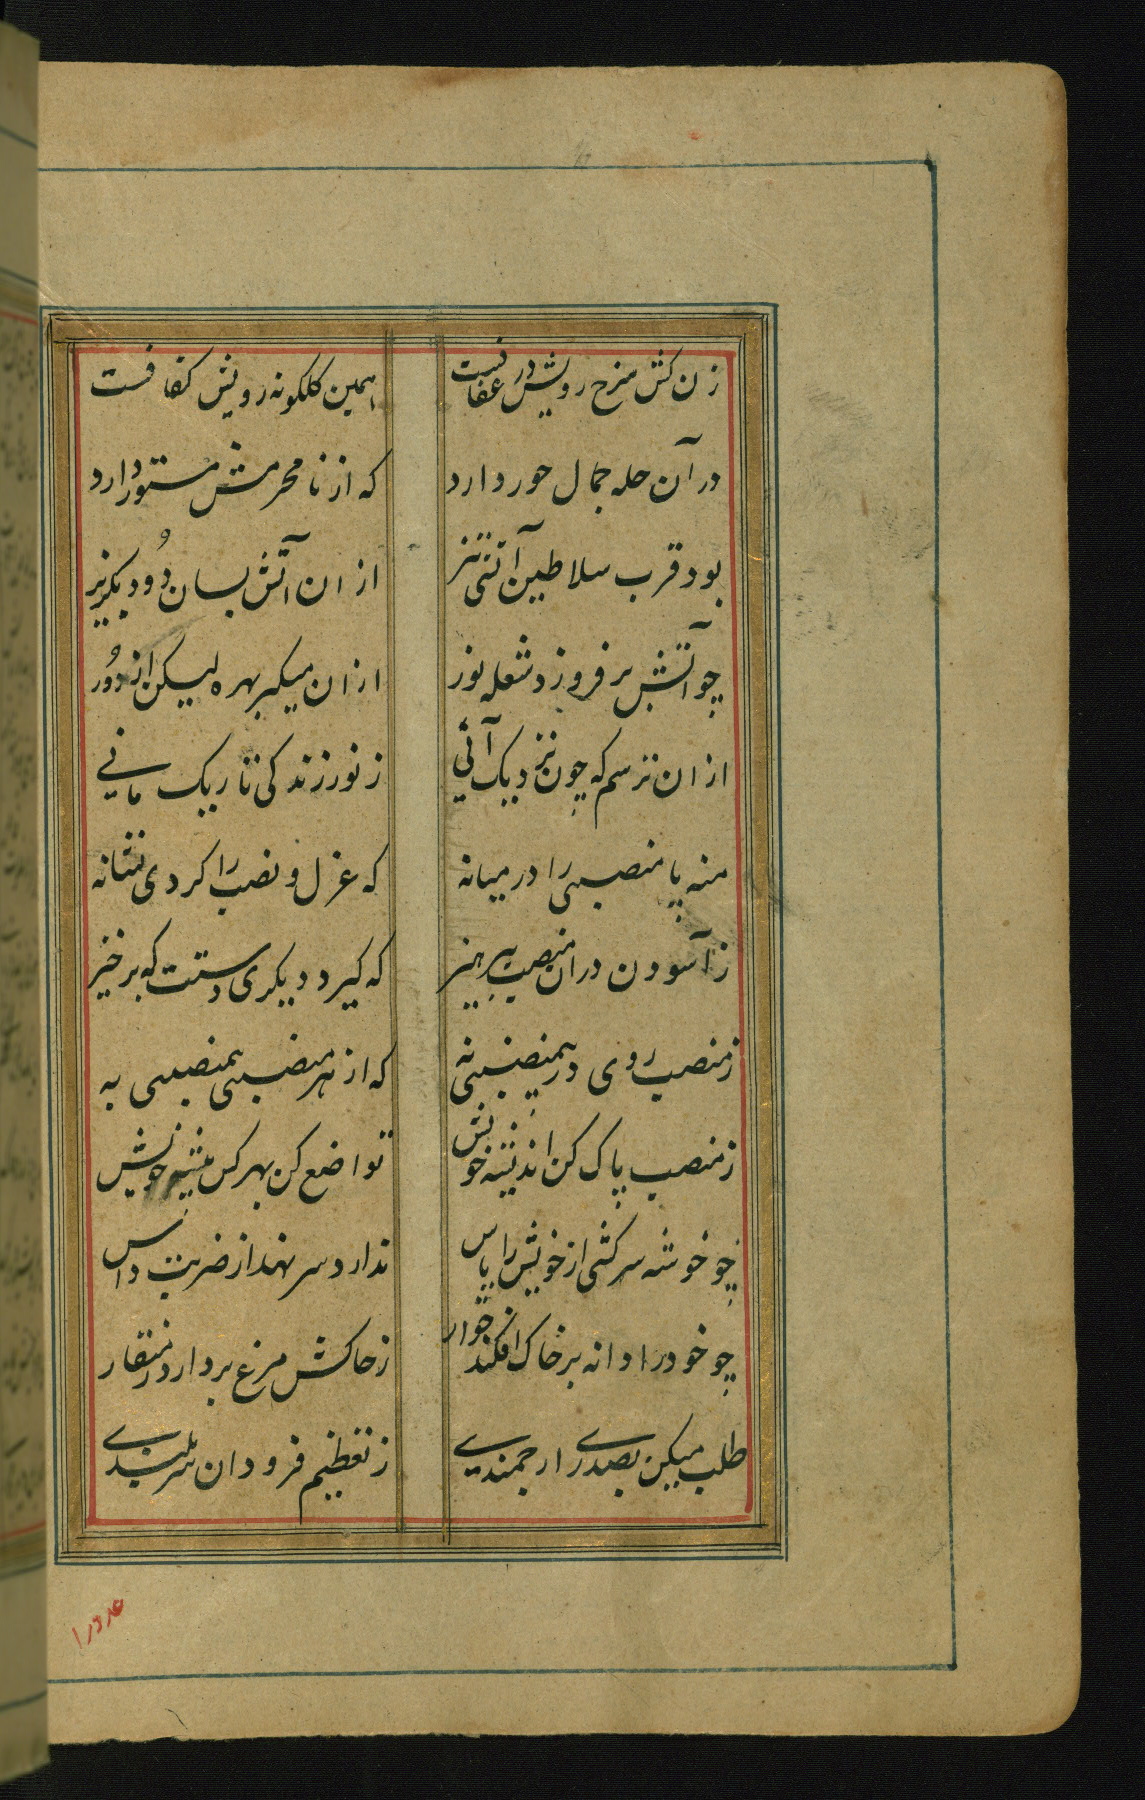 زن کش سرخ رویش در عفافست همین کلکونه رویش کفافست
در آن حله جمال حور دارد که از نامحرمش مستور دارد
بود قرب سلاطین آتش تیز از ان آتش بسان دُود بکریز
چو آتش بر فروزد شعله نور از ان میکیر بهره لیکن از دُور
از ان ترسم که چون نزدیک آئی ز نور زندکی تاریک مانی
منه پا منصبی را در میانه که عزل و نصب را کردی نشانه
ز آسودن در ان منصب بپرهیز که کیرد دیکری دستت که برخیز
ز منصب روی در بیمنصبی نه که از هر منصبی بیمنصبی به
ز منصب پاک کن اندیشه خویش تواضع کن بهر کس پیشه خویش
چو خوشه سرکشی از خویش را پاس ندارد سر نهد از ضربت داس
چو خود را دانه بر خاک افکند خوار ز خاکش مرغ بردارد منقار
طلب میکن بصدری ارجمندی ز تعظیم فرودان سربلندی